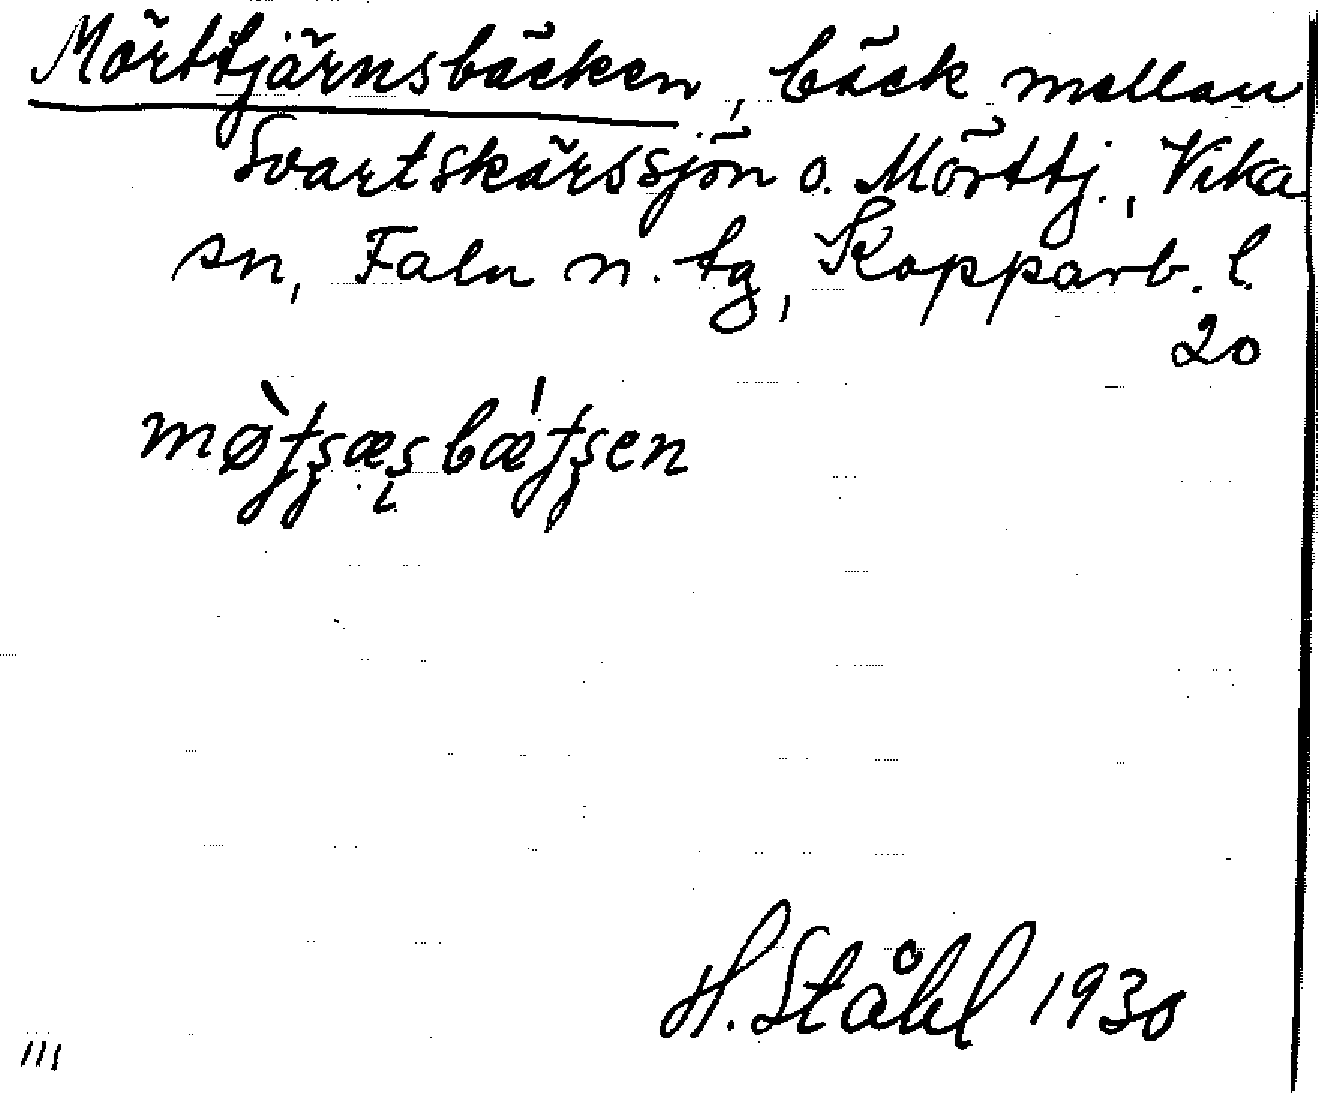 Mörttjärnsbäcken, bäck mellan
Svartskärssjön o. Mörttj., Vika
sn, Falu n. tg, Kopparb. l.
20
H. Ståhl 1930